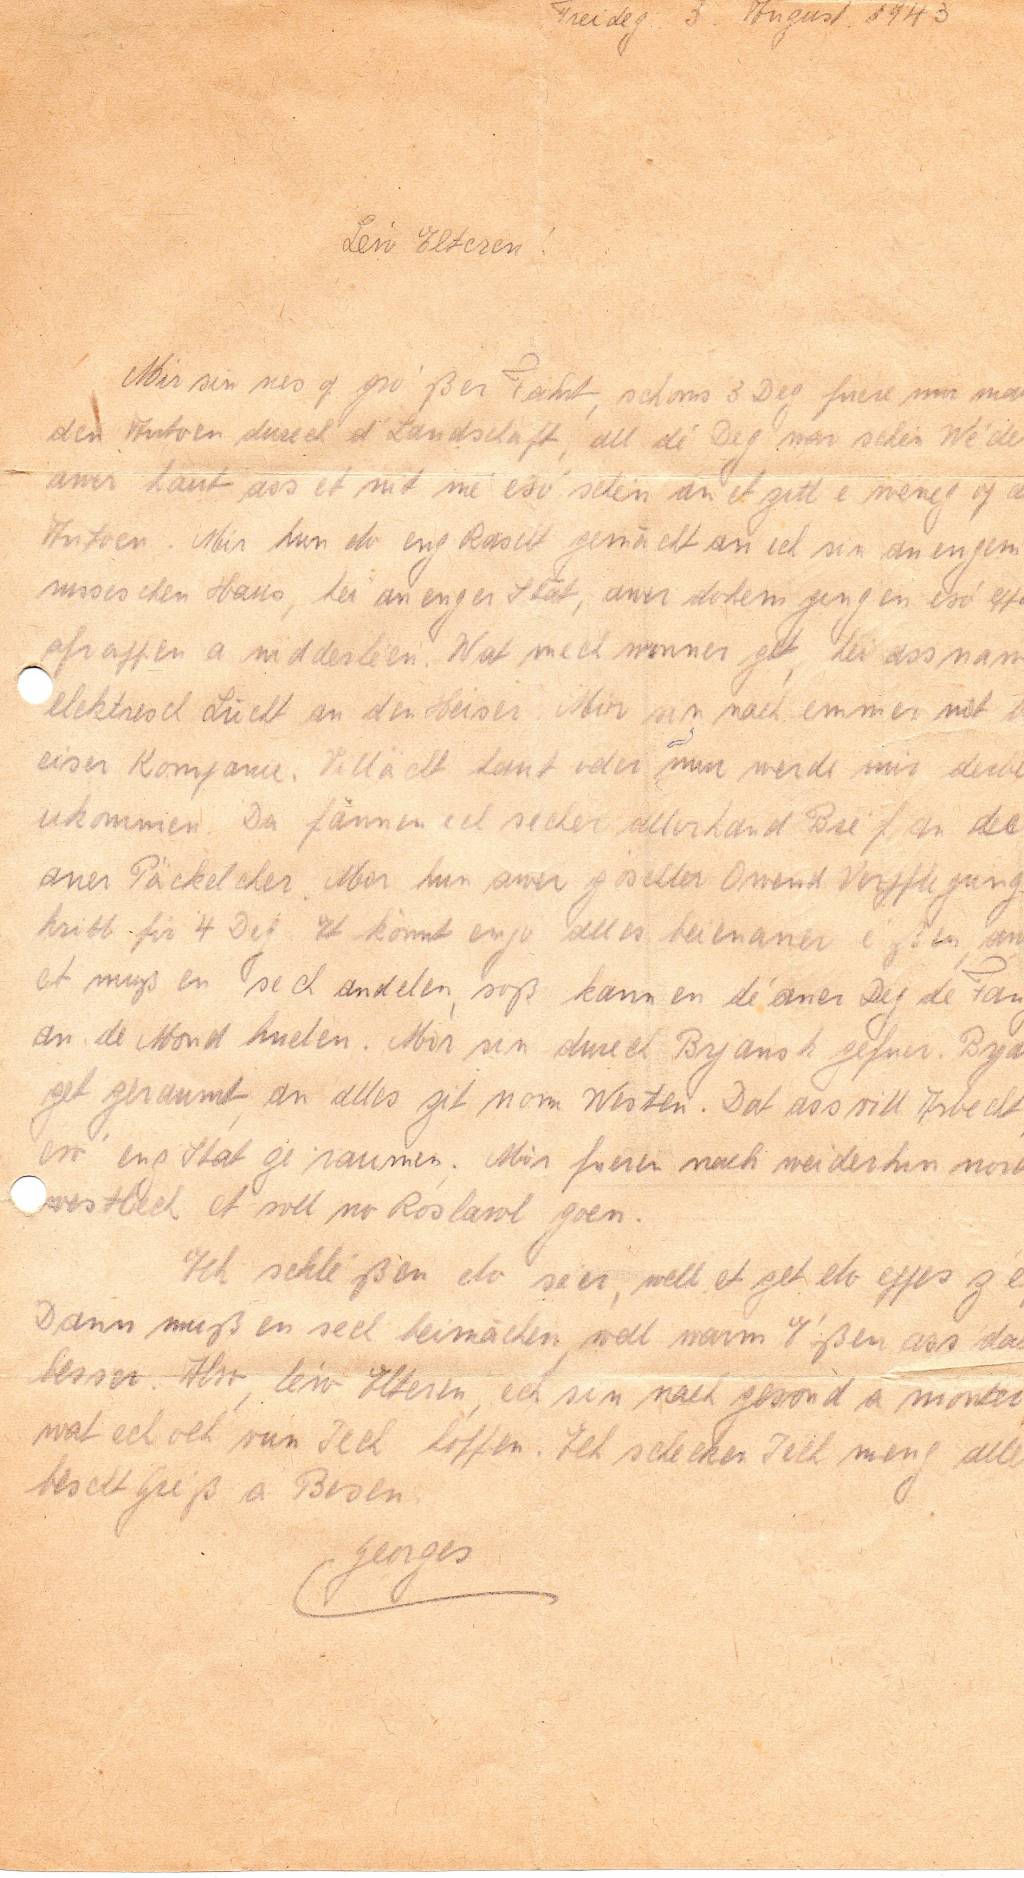 Freideg 3. August 1943
Léiw Elteren!
Mir sin nes op gró ßer Fahrt, schons 3 Deg fuere mir mat
den Autoen durech d'Landschaft, all dé Deg war schéin Wé der
awer haut ass et nit mé esó schéin an et gëtt e weneg op d
Autoen. Mir hun do eng Rascht gemácht an ech sin an engem
russeschen Haus, hei an enger Stat, awer dohem gengen esó
ofraffen a nidderléen. Wat mech wonner get, hei ass
elektresch Lücht an den Heiser. Mir sin nach emmer nit
eiser Kompanie. Villächt haut oder mur werde mir
ukommen. Da fännen ech secher allerhand Bréf an
aner Päckelcher. Mir hun awer gëschter Owend Verpflegung
kritt fir 4 Deg. Et könnt engo alles beienaner é ßen,
et muß en sech andelen, soß kann en dé aner Deg dé
an de Mond huelen. Mir sin durech Bryansk gefuer.
get geraumt, an alles git nom Westen. Dat ass vill Arbecht,
esó eng Stat ze raumen. Mir fueren nach weiderhin
westlech et soll no Roslawl goen.
Ech schlé ßen do, well et get do eppes
Dann muß en sech beimáchen, well warm I' ßen ass
besser. Also, léiw Elteren, ech sin nach gesond a monter,
wat ech och vun Iech hoffen. Ech schecken Iech meng
bescht Gréiß a Besen
Georges